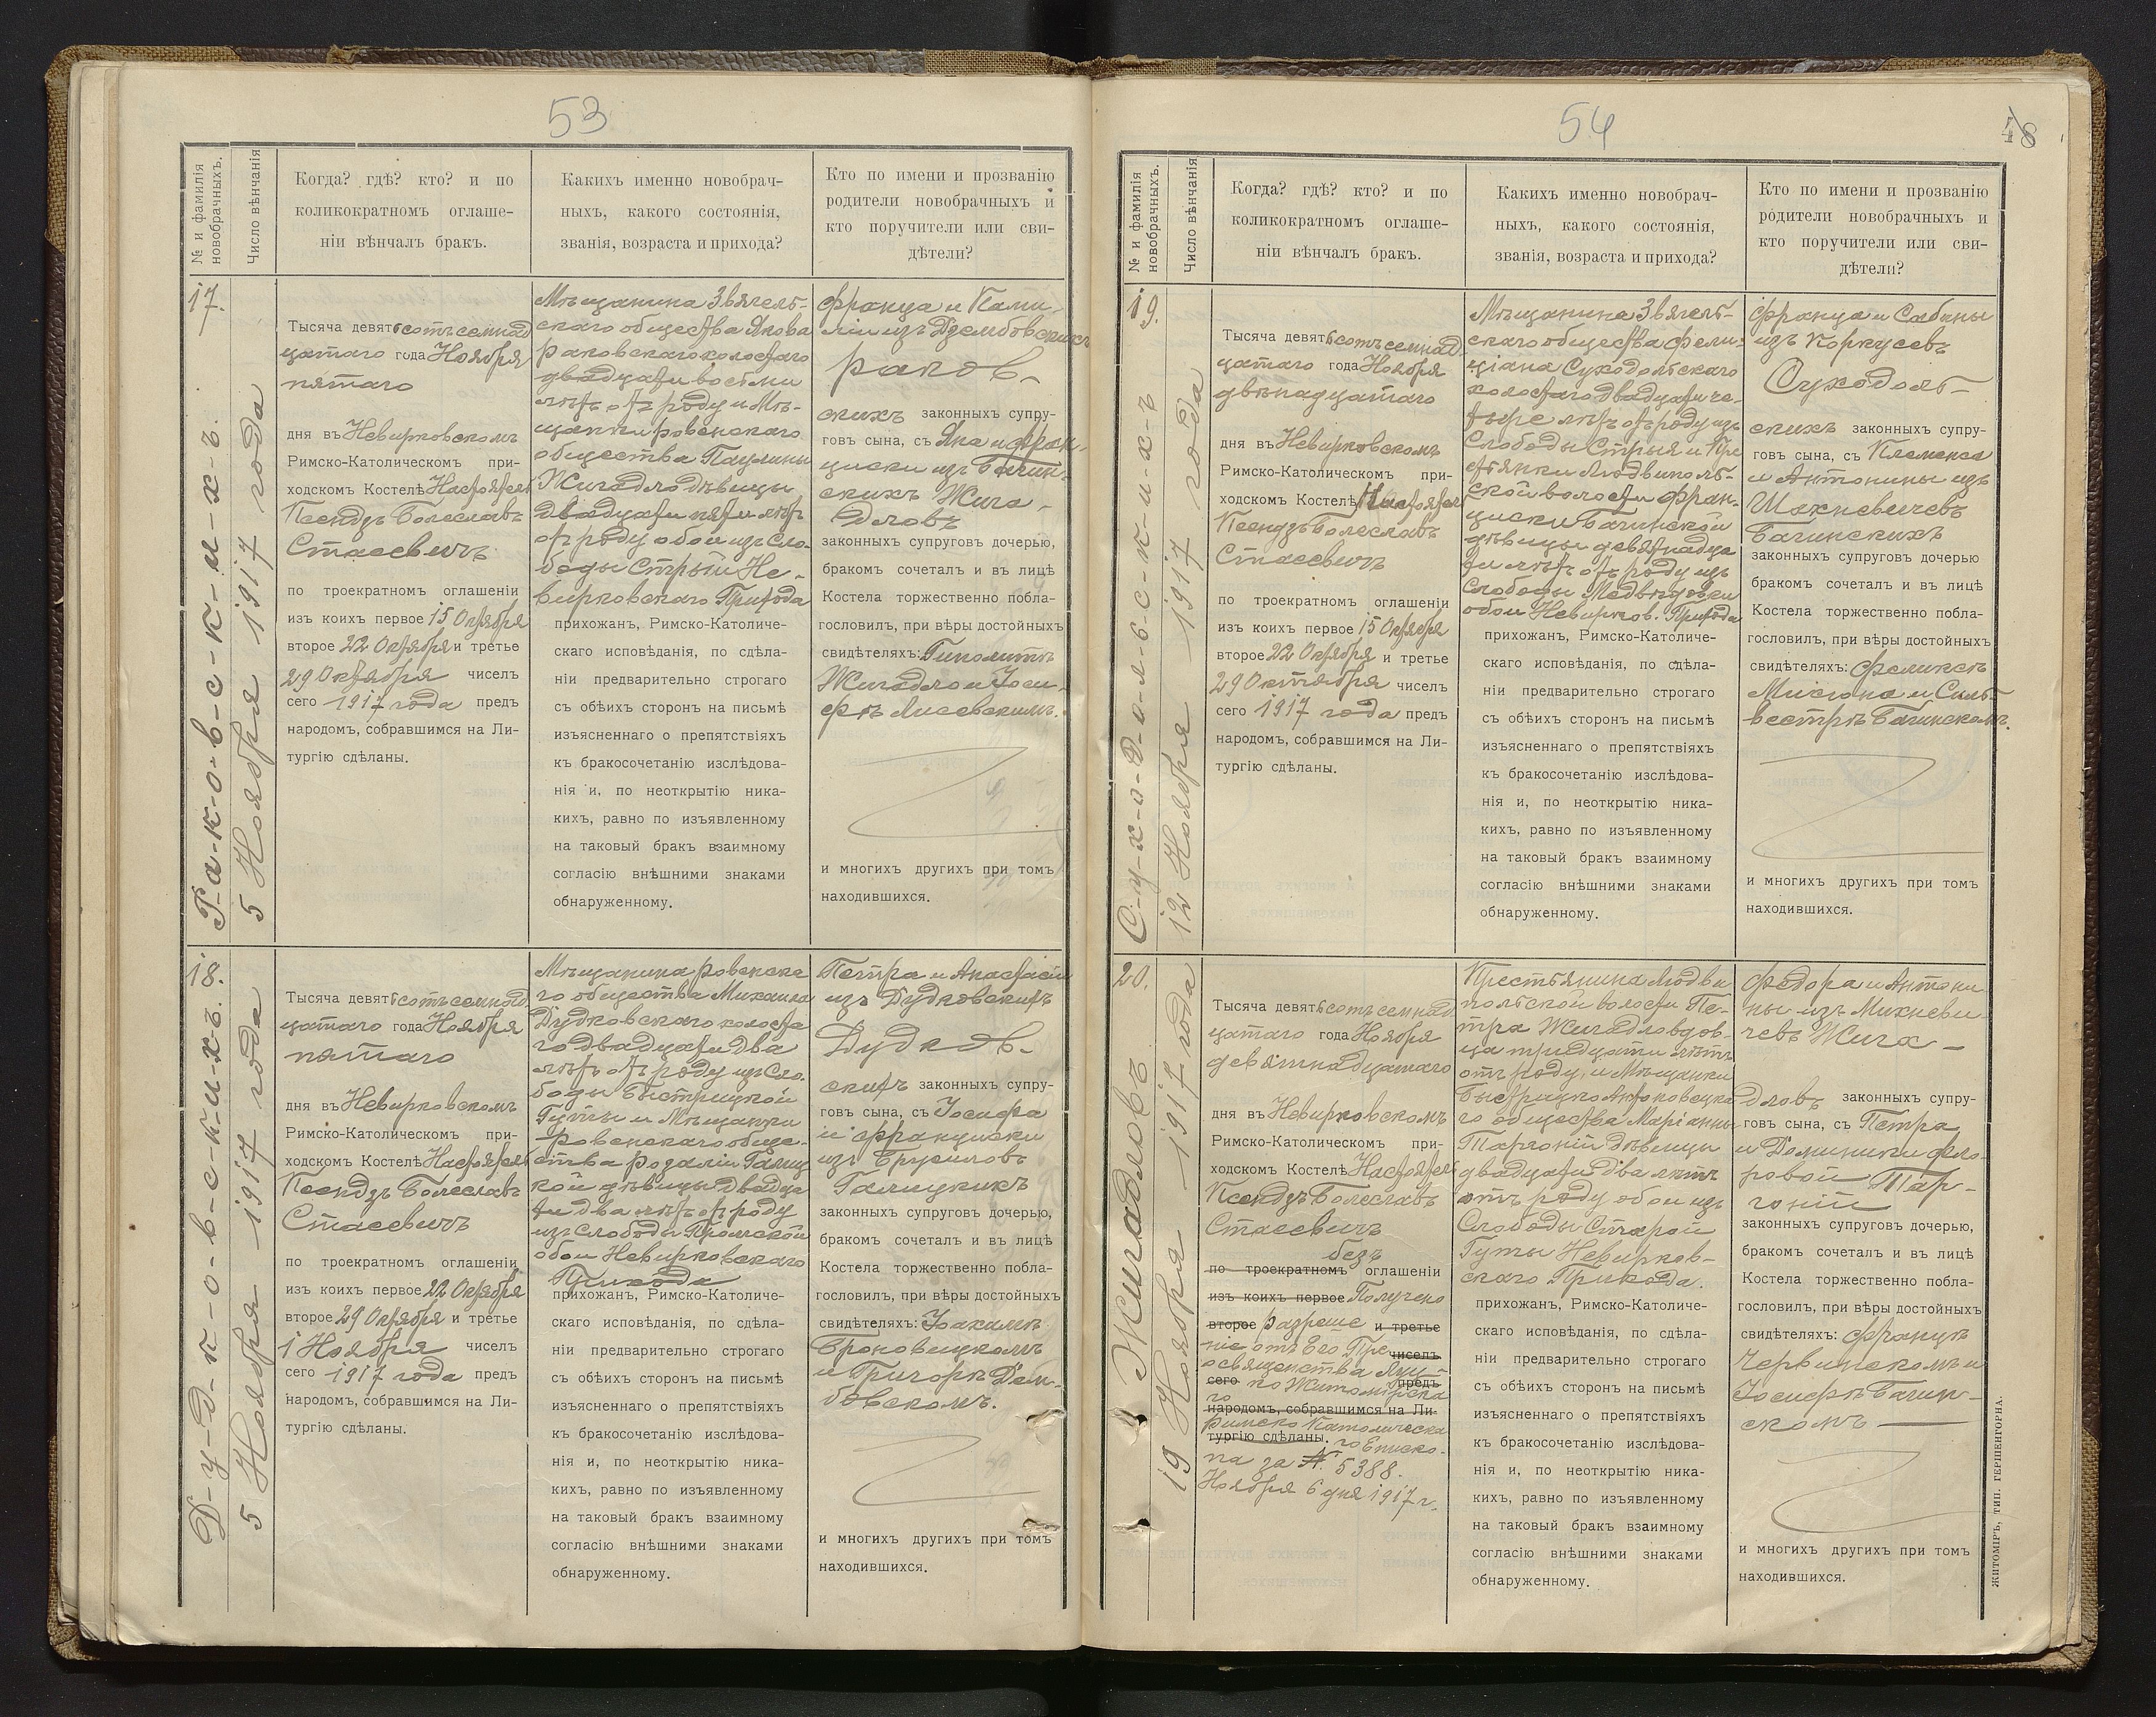 53
№ и фамилія новобрачныхъ.
Число вѣнчанія
Когда? гдѣ? кто? и по
коликократномъ оглаше-
ніи вѣнчалъ бракъ.
Какихъ именно новобрач-
ныхъ, какого состоянія,
званія, возраста и прихода?
Кто по имени и прозванію
родители новобрачныхъ и
кто поручители или сви-
дѣтели?
17.
Р-а-к-о-в-с-к-и-х-ъ.
5 Ноября 1917 года
Тысяча девятьсотъ семнад
цатаго года Ноября
пятаго
дня въ Невирковскомъ
Римско-Католическомъ при-
ходскомъ Костелѣ Настоятель
Ксендзъ Болеславъ
Стасевичъ
по троекратномъ оглашеніи
изъ коихъ первое 15 Октября
второе 22 Октября и третье
29 Октября чиселъ
сего 1917 года предъ
народомъ, собравшимся на Ли-
тургію сдѣланы.
Мѣщанина Звягель-
скаго общества Якова
Раковскаго холостаго
двадцати восьми
лѣтъ отъ роду и Мѣ-
щанки Ровенскаго
общества Паулины
Жигадло дѣвицы
двадцати пяти лѣтъ
отъ роду обои изъ Сло-
боды Стрыи Не-
вирковскаго Прихода
прихожанъ, Римско-Католиче-
скаго исповѣданія, по сдѣла-
ніи предварительно строгаго
съ обѣихъ сторонъ на письмѣ
изъясненнаго о препятствіяхъ
къ бракосочетанію изслѣдова-
нія и, по неоткрытію ника-
кихъ, равно по изъявленному
на таковый бракъ взаимному
согласію внѣшними знаками
обнаруженному.
Франца и Ками-
ліи изъ Дзембовскихъ
Раков-
скихъ законныхъ супру-
говъ сына, съ Яна и Фран-
циски изъ Бачин-
скихъ Жига-
дловъ
законныхъ супруговъ дочерью,
бракомъ сочеталъ и въ лицѣ
Костела торжественно побла-
гословилъ, при вѣры достойныхъ
свидѣтеляхъ: Гиполитѣ
Жигадло и Іоси-
фѣ Лисевскимъ.
и многихъ другихъ при томъ
находившихся.
18.
Д-у-д-к-о-в-с-к-и-х-ъ.
5 Ноября 1917 года
Тысяча девятьсотъ семнад
цатаго года Ноября
пятаго
дня въ Невирковскомъ
Римско-Католическомъ при-
ходскомъ Костелѣ Настоятель
Ксендзъ Болеславъ
Стасевичъ
по троекратномъ оглашеніи
изъ коихъ первое 22 Октября
второе 29 Октября и третье
1 Ноября чиселъ
сего 1917 года предъ
народомъ, собравшимся на Ли-
тургію сдѣланы.
Мѣщанина Ровенска
го общества Михаила
Дудковскаго холоста
го двадцати два
лѣтъ отъ роду изъ Сло-
боды Быстрицкой
Гуты и Мѣщанки
Ровенскаго обще-
ства Розаліи Галиц
кой дѣвицы двадца
ти два лѣтъ отъ роду
изъ Слободы
обои Невирковскаго
Прихода
прихожанъ, Римско-Католиче-
скаго исповѣданія, по сдѣла-
ніи предварительно строгаго
съ обѣихъ сторонъ на письмѣ
изъясненнаго о препятствіяхъ
къ бракосочетанію изслѣдова-
нія и, по неоткрытію ника-
кихъ, равно по изъявленному
на таковый бракъ взаимному
согласію внѣшними знаками
обнаруженному.
Петра и Анастасіи
изъ Дудковскихъ
Дудков-
скихъ законныхъ супру-
говъ сына, съ Іосифа
и Франциски
изъ Брусиловъ
Галицкихъ
законныхъ супруговъ дочерью,
бракомъ сочеталъ и въ лицѣ
Костела торжественно побла-
гословилъ, при вѣры достойныхъ
свидѣтеляхъ: Іоакимѣ
Броновицкомъ
и Григорѣ Дем-
бовскомъ.
и многихъ другихъ при томъ
находившихся.
54
48
№ и фамилія новобрачныхъ.
Число вѣнчанія
Когда? гдѣ? кто? и по
коликократномъ оглаше-
ніи вѣнчалъ бракъ.
Какихъ именно новобрач-
ныхъ, какого состоянія,
званія, возраста и прихода?
Кто по имени и прозванію
родители новобрачныхъ и
кто поручители или сви-
дѣтели?
19.
С-у-х-о-д-о-л-ь-с-к-и-х-ъ
12 Ноября 1917 года
Тысяча девятьсотъ семнад
цатаго года Ноября
двѣнадцатаго
дня въ Невирковскомъ
Римско-Католическомъ при-
ходскомъ Костелѣ Настоятель
Ксендзъ Болеславъ
Стасевичъ
по троекратномъ оглашеніи
изъ коихъ первое 15 Октября
второе 22 Октября и третье
29 Октября чиселъ
сего 1917 года предъ
народомъ, собравшимся на Ли-
тургію сдѣланы.
Мѣщанина Звягель-
скаго общества Фели-
ціана Суходольскаго
холостаго двадцати че-
тыре лѣтъ отъ роду изъ
Слободы Стрыя и Кре
стьянки Людвиполь-
ской волости Фран-
циски Бачинской
дѣвицы девятнадца
ти лѣтъ отъ роду изъ
Слободы Медвѣдовки
обои Невирков. Прихода
прихожанъ, Римско-Католиче-
скаго исповѣданія, по сдѣла-
ніи предварительно строгаго
съ обѣихъ сторонъ на письмѣ
изъясненнаго о препятствіяхъ
къ бракосочетанію изслѣдова-
нія и, по неоткрытію ника-
кихъ, равно по изъявленному
на таковый бракъ взаимному
согласію внѣшними знаками
обнаруженному.
Франца и Сабины
изъ Коркусевъ
Суходоль-
скихъ законныхъ супру-
говъ сына, съ Клеменса
и Антонины изъ
Шахневичевъ
Бачинскихъ
законныхъ супруговъ дочерью
бракомъ сочеталъ и въ лицѣ
Костела торжественно побла-
гословилъ, при вѣры достойныхъ
свидѣтеляхъ: Феликсѣ
Мисюна и Силь-
вестрѣ Бачинскомъ.
и многихъ другихъ при томъ
находившихся.
20.
Жигадловъ
19 Ноября 1917 года
Тысяча девятьсотъ семнад
цатаго года Ноября
девятнадцатаго
дня въ Невирковскомъ
Римско-Католическомъ при-
ходскомъ Костелѣ Настоятель
Ксендзъ Болеславъ
Стасевичъ
безъ
по троекратномъ оглашеніи
изъ коихъ первое Получено
второе разреше и третье
ніе отъ Его Пре чиселъ
освященства Луц-
сего ко Житомірска предъ
го
народомъ, собравшимся на Ли-
Римско Католическа
тургію сдѣланы. го Еписко-
па за №. 5388.
Ноября 6 дня 1917 г.
Крестьянина Людви
польской волости Пе-
тра Жигадло вдов-
ца тридцати лѣтъ
отъ роду, и Мѣщанки
го общества Маріанны
Таргоній дѣвицы
двадцати два лѣтъ
отъ роду обои изъ
Слободы Старой
Гуты Невирков-
скаго Прихода.
прихожанъ, Римско-Католиче-
скаго исповѣданія, по сдѣла-
ніи предварительно строгаго
съ обѣихъ сторонъ на письмѣ
изъясненнаго о препятствіяхъ
къ бракосочетанію изслѣдова-
нія и, по неоткрытію ника-
кихъ, равно по изъявленному
на таковый бракъ взаимному
согласію внѣшними знаками
обнаруженному.
Федора и Антони
ны изъ Михневи
чевъ Жига-
дловъ законныхъ супру-
говъ сына, съ Петра
и Доминики Фло-
ровой Тар-
гоній
законныхъ супруговъ дочерью,
бракомъ сочеталъ и въ лицѣ
Костела торжественно побла-
гословилъ, при вѣры достойныхъ
свидѣтеляхъ: Францѣ
Червинскомъ и
Іосифѣ Бачин-
скомъ
и многихъ другихъ при томъ
находившихся.
ЖИТОМІРЪ, ТИП. ГЕРШЕНГОРНА.